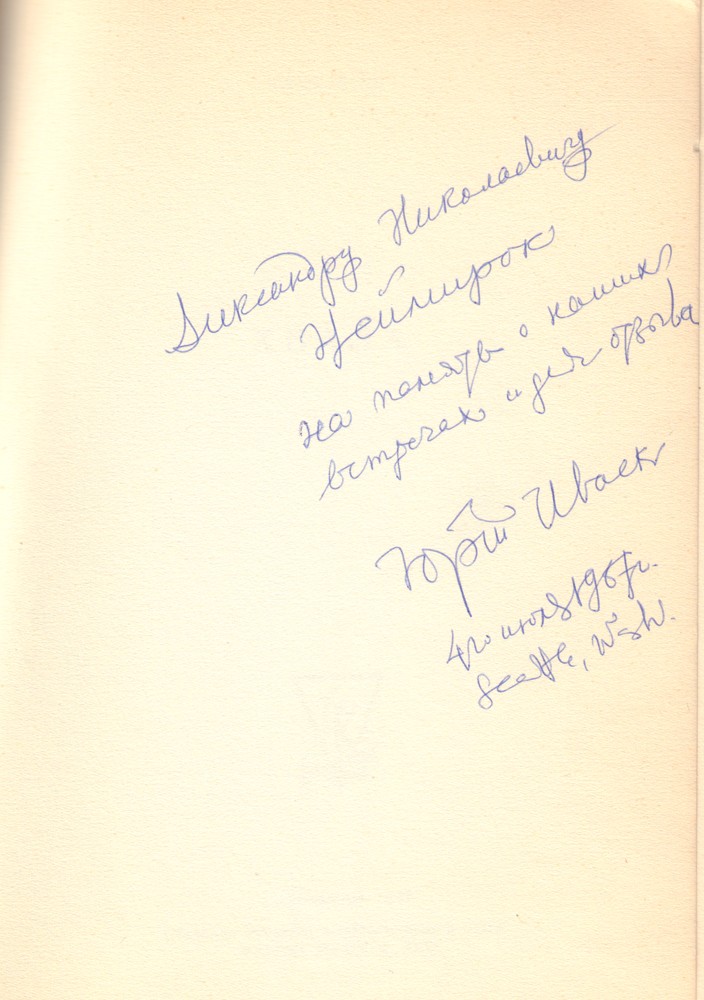 Александру Николаевичу
Неймирок
на память о наших
встречах и для отзыва
Юрий Иваск
4го июля 1957г.
Seattle, Wsh.